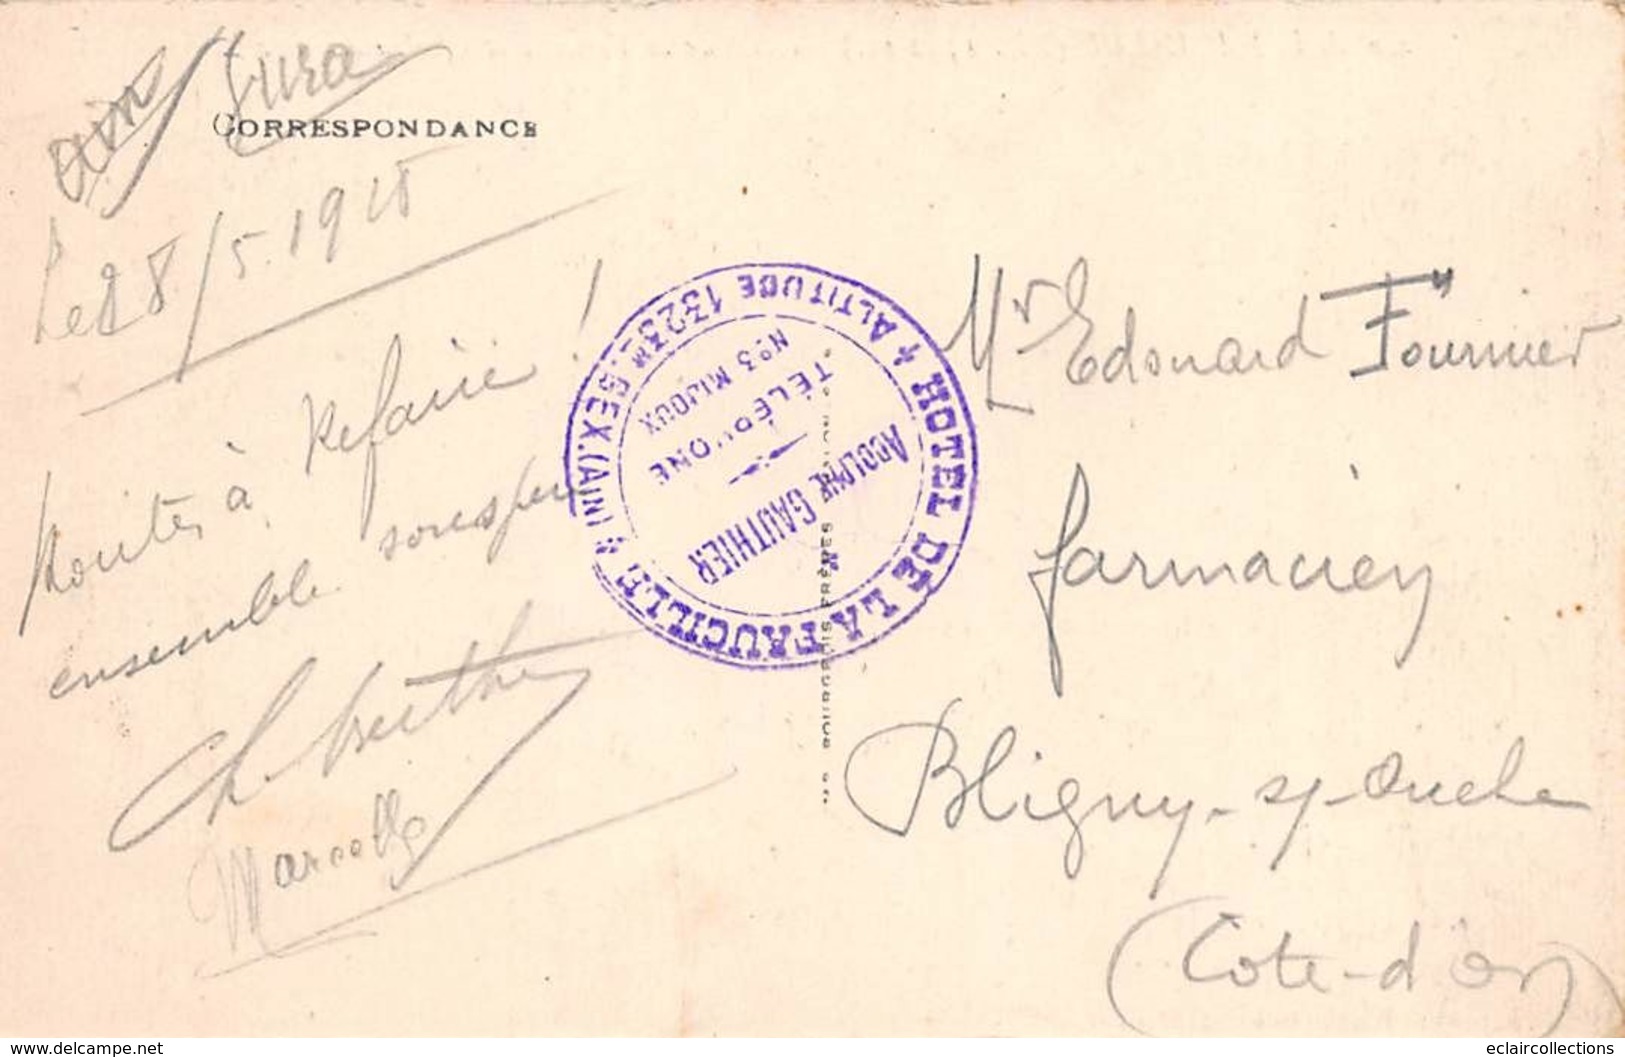 Jura
CORRESPONDANCE
Le 28/5. 1915
à Refaire!
ensemble
Marcelle
HOTEL DE LA FAUCILLE
ALTITUDE 1323m. GEX. (AIN)
ADOLPHE GAUTHIER
TÉLÉPHONE
No 3 MIJOUX
Mr Edouard Fournier
farmacien
Bligny-s/-Ouche
(Cote-d'or)
www.delcampe.net
eclaircollections